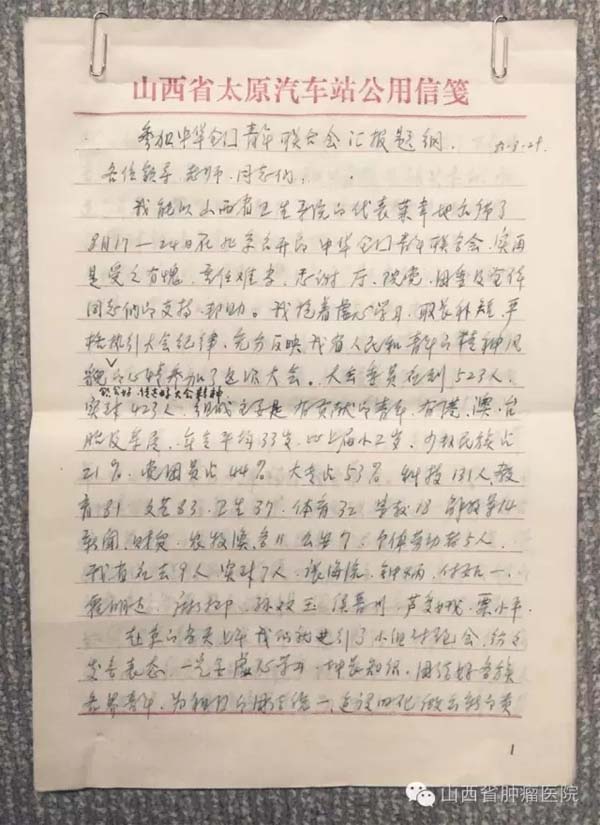 山西省太原汽车站公用信笺
参加中华全国青年联合会汇报题纲. 83.8.29.
各位领导、老师、同志们,
我能以山西省卫生系统的代表荣幸地出席了
8月17—24日在北京召开的中华全国青年联合会,实再
是受之有愧,责任难当,感谢厅、院党、团委及全体
同志们的支持、帮助。我抱着虚心学习,取长补短,严
格执行大会纪律,充分反映我省人民和青年的精神风
貌的心情参加了这次大会。大会委员应到523人,
传达好大会精神
实到423人,组成主要是有贡献的青年,有港、澳、台
胞及华侨,年令平均33岁,比上届小2岁,少数民族占
21%,党团员占44%,大专占53%,科技131人教
育31 文艺83、卫生37、体育32 宗教18 解放军14
新闻、财贸、农牧渔各11 公安7、个体劳动者5人.
我省应去9人实到7人,
在京的当天上午我们就进行了小组讨论会,纷纷
发言表态,一定要虚心学习,增长知识,团结好各族
各界青年,为祖国的统一、建设四化做出新贡
1
山西省肿瘤医院